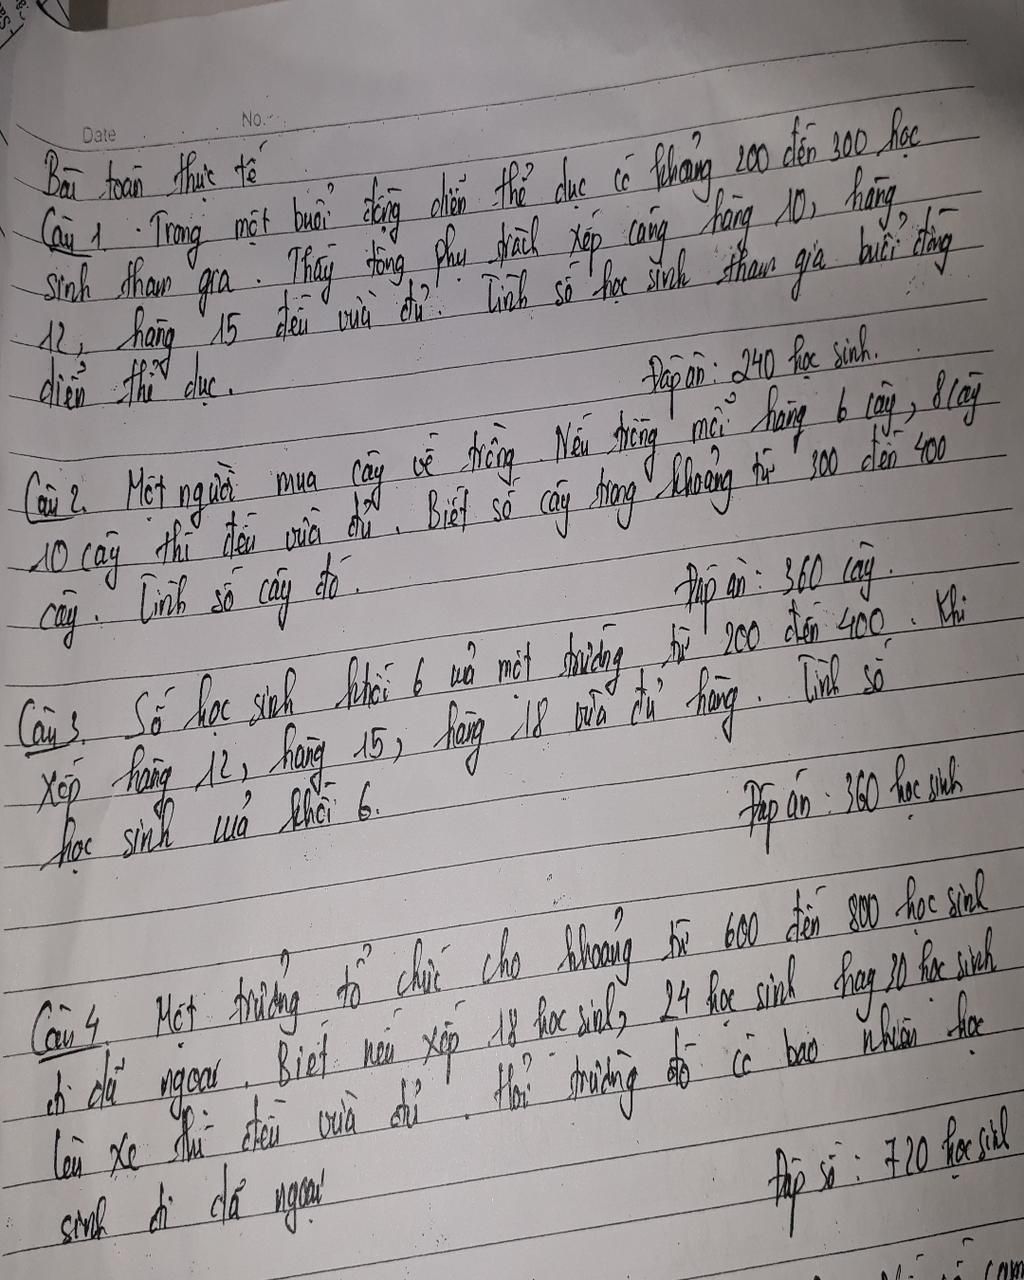 Date No.
Bài toán thực tế
Câu 1. Trong một buổi đồng diễn thể dục có khoảng 200 đến 300 học
sinh tham gia. Thầy tổng phụ trách xếp càng hàng 10, hàng
12, hàng 15 đều vừa đủ. Tính số học sinh tham gia buổi đồng
diễn thể dục.
Đáp án: 240 học sinh.
Câu 2. Một người mua cây về trồng. Nếu trồng mỗi hàng 6 cây, 8 cây
10 cây thì đều vừa đủ. Biết số cây trong khoảng từ 300 đến 400
cây. Tính số cây đó.
Đáp án: 360 cây.
Câu 3. Số học sinh khối 6 của một trường từ 200 đến 400. Khi
xếp hàng 12, hàng 15, hàng 18 vừa đủ hàng. Tính số
học sinh của khối 6.
Đáp án: 360 học sinh
Câu 4. Một trường tổ chức cho khoảng từ 600 đến 800 học sinh
đi dã ngoại. Biết nếu xếp 18 học sinh, 24 học sinh hay 30 học sinh
lên xe thì đều vừa đủ. Hỏi trường đó có bao nhiêu học
sinh đi dã ngoại
Đáp số: 720 học sinh